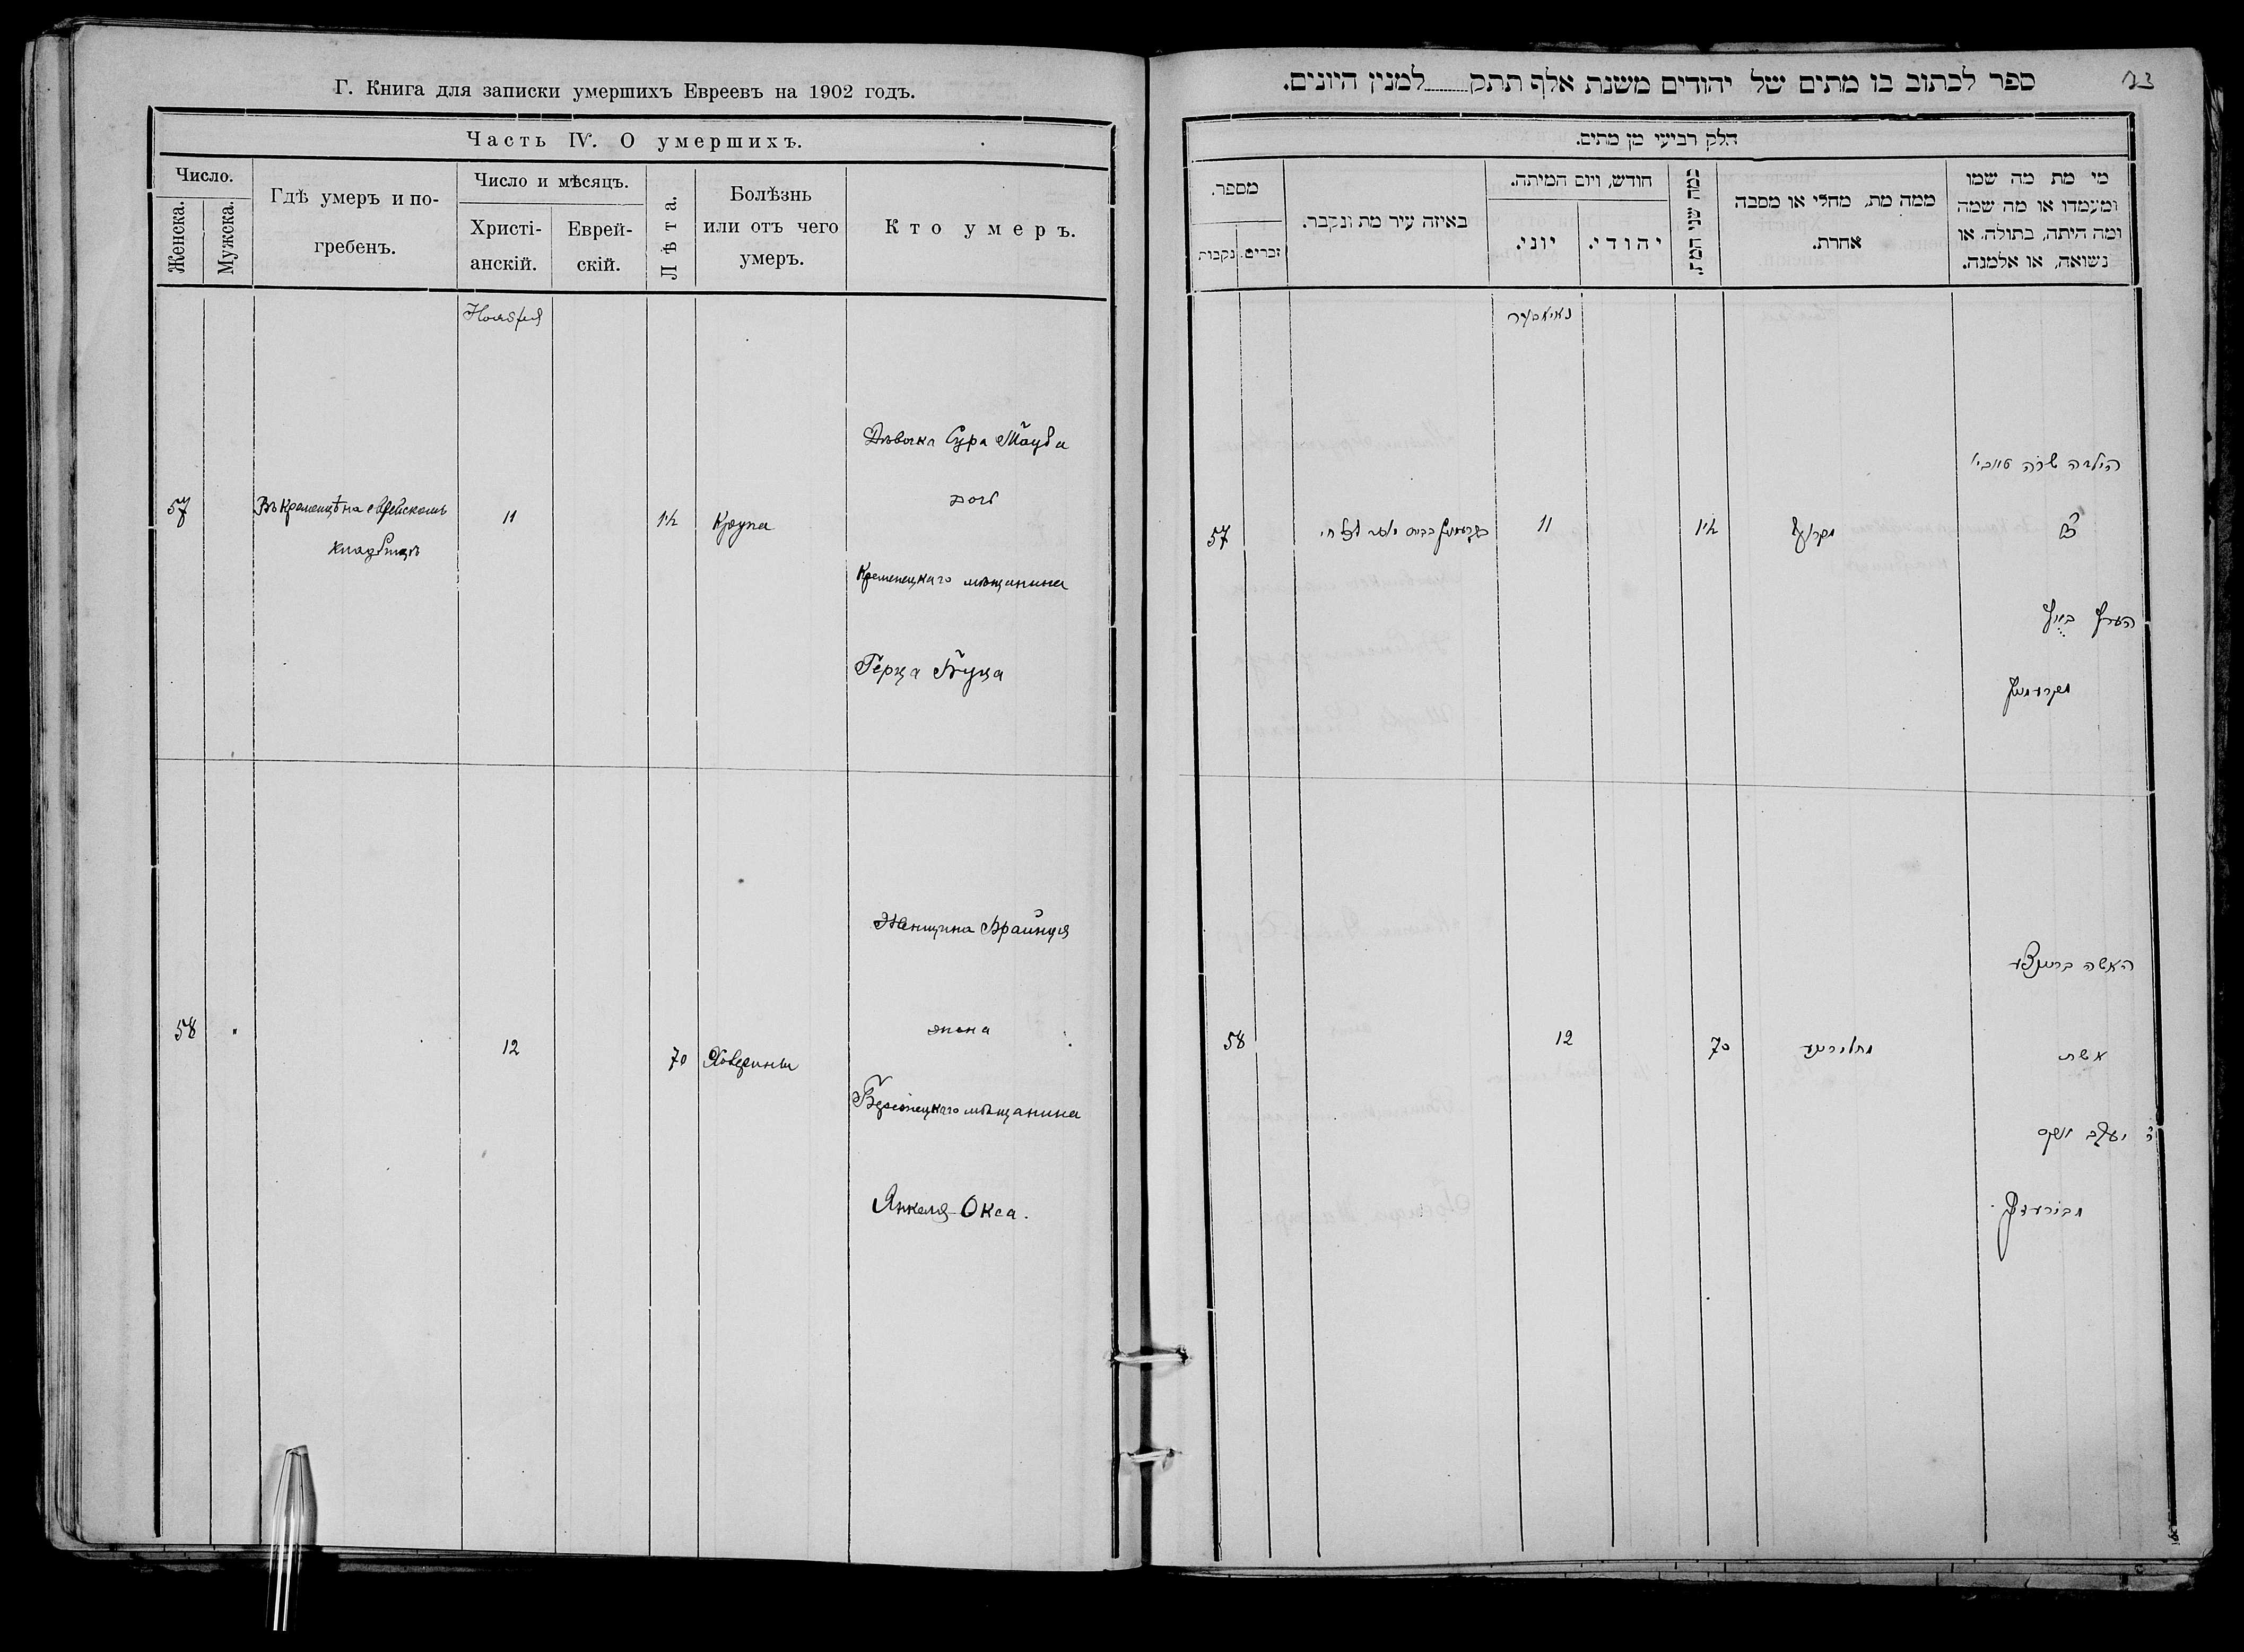 Г. Книга для записки умершихъ Евреевъ на 1902 годъ.
Часть IV. О умершихъ.
Число.
Женска.
Мужска.
Гдѣ умеръ и по-
гребенъ.
Число и мѣсяцъ.
Христі-
анскій.
Еврей-
скій.
Лѣта.
Болѣзнь
или отъ чего
умеръ.
Кто умеръ.
Ноября
57
Въ Кременцѣ на еврейскомъ
кладбищѣ
11
1½
Крупа
Дѣвочка Сура Тауба
дочь
Кременецкаго мѣщанина
Герца Буца
58
12
70
Холерины
Женщина Брайнця
жена
мѣщанина
Янкеля Окса.
ספר לכתוב בו מתים של יהודים משנת אלף תתק למנין היונים.
חלק רביעי מן מתים.
מספר.
זכרים.
נקבות
באיזה עיר מת ונקבר.
חודש, ויום המיתה.
יוני.
יהודי.
כמה שני המת.
ממה מת, מחלי או מסבה
אחרת.
מי מת מה שמו
ומעמדו או מה שמה
ומה היתה, בתולה, או
נשואה, או אלמנה.
נאיאבער
57
11
1½
הילדה שרה טויבי
58
12
70
האשה
אשת
יעקב